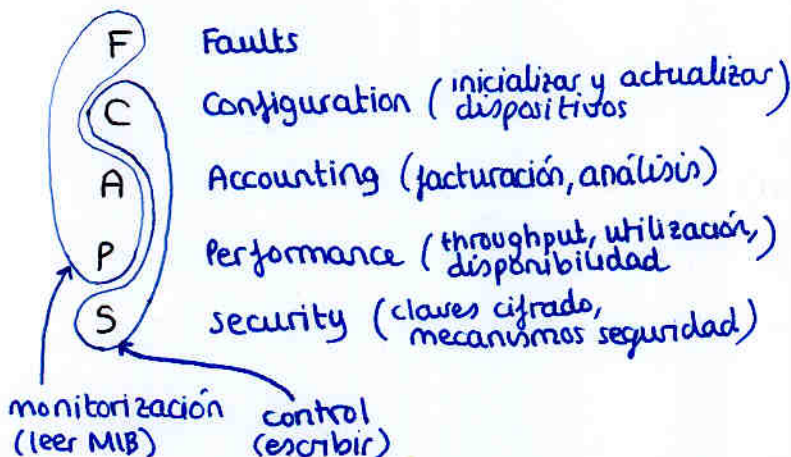 F Faults
C Configuration (inicializar y actualizar dispositivos)
A Accounting (facturación, análisis)
P Performance (throughput, utilización, disponibilidad)
S security (claves cifrado, mecanismos seguridad)
monitorización
(leer MIB)
control
(escribir)